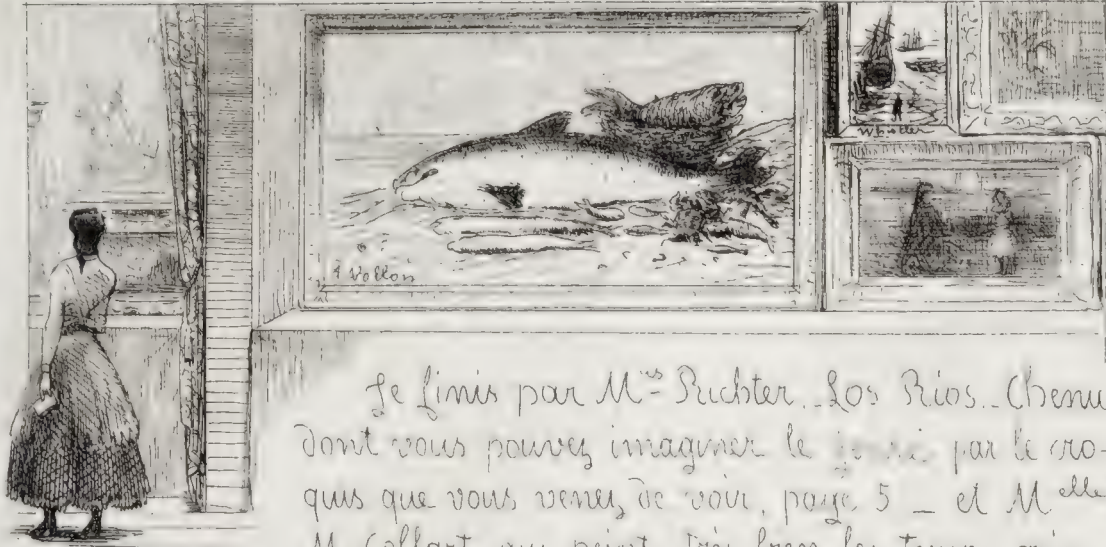 Whistler
A Vollon
Je finis par Mrs Richter._Los Rios._Chenu
dont vous pouvez imaginer le par le cro-
quis que vous venez de voir, page 5 _ et Melle
M. Collart qui peint très bien les